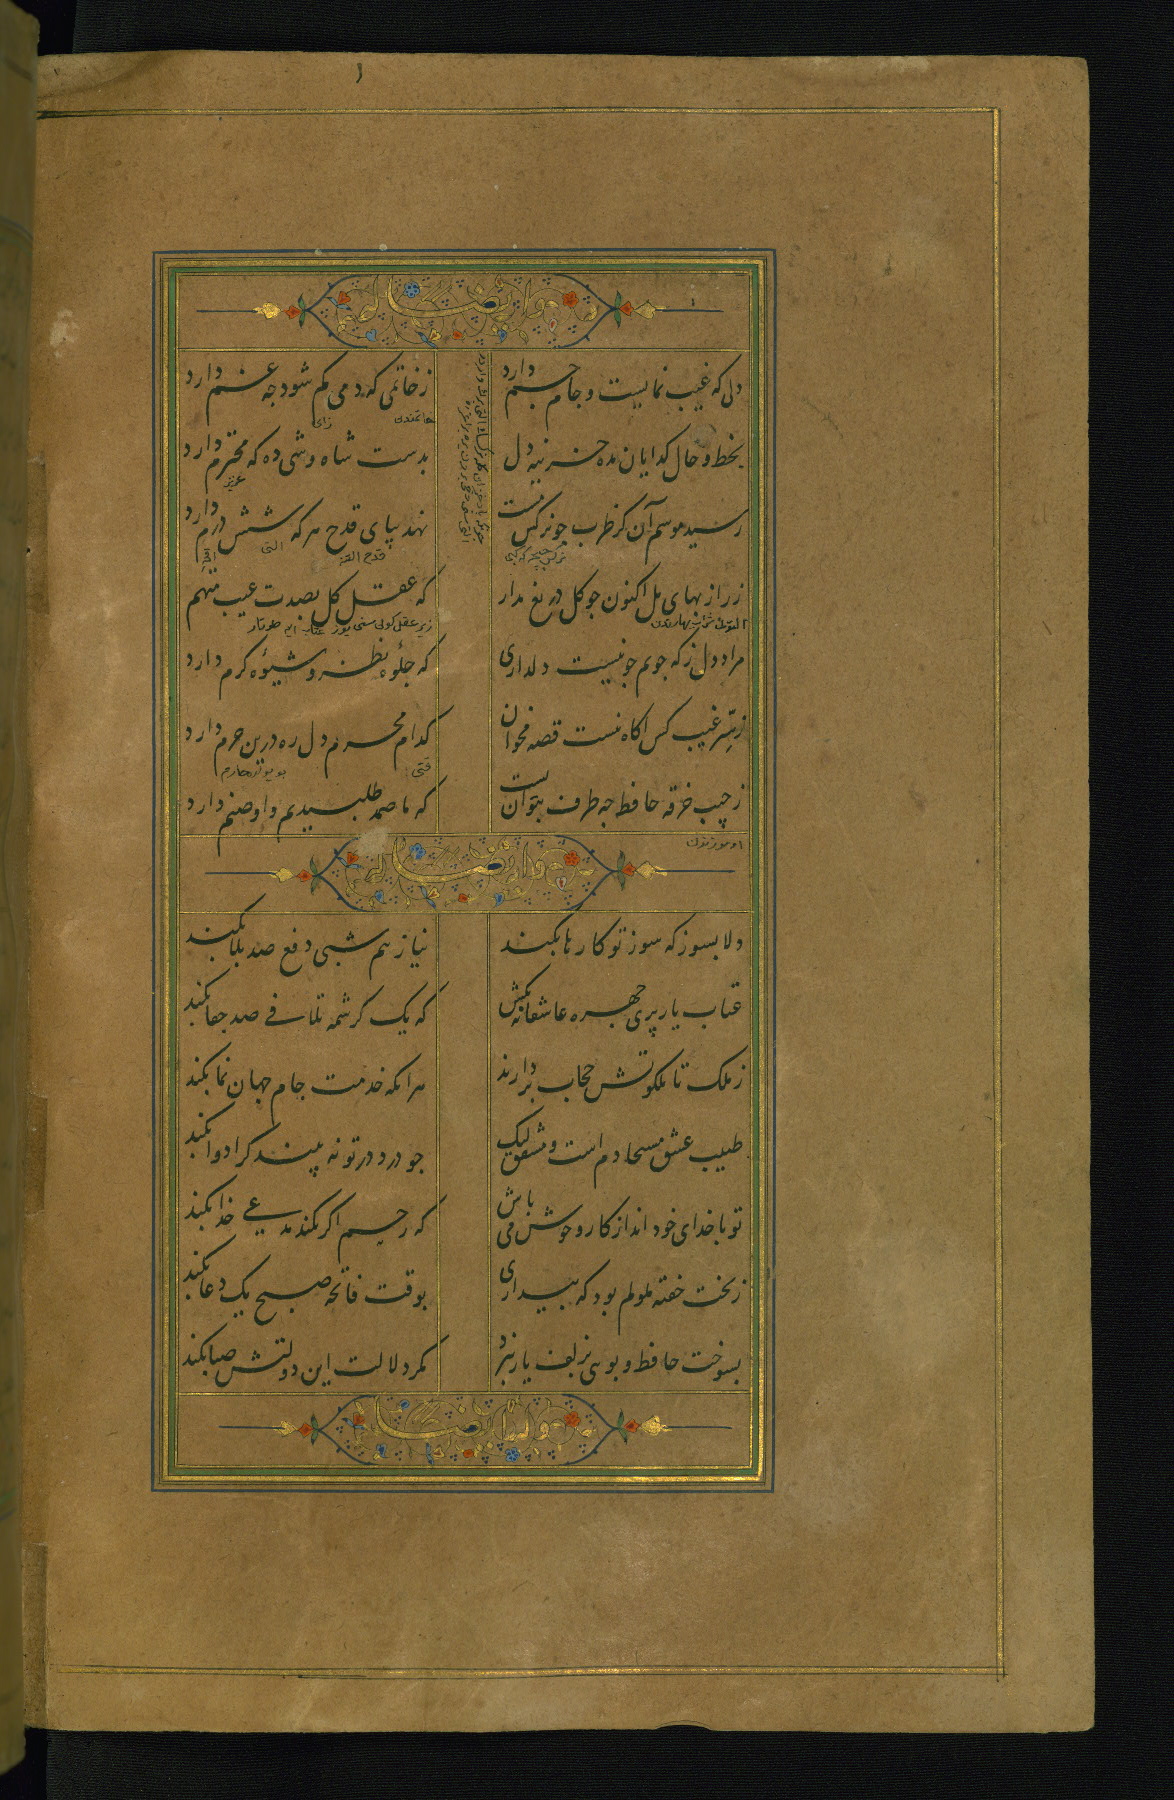 وله ایضا
دلی که غیب نمایست و جام جم دارد
ز خاتمی که دمی کم شود چه غم دارد
بخط و خال کدایان مده خزینه دل
بدست شاه وشی ده که محترم دارد
رسید موسم آن کز طرب چو نرکس مست
نهد بپای قدح هر که شش درم دارد
زر از بهای مل اکنون چو کل دریغ مدار
که عقل کل بصدت عیب متهم دارد
مراد دل ز که جویم چو نیست دلداری
که جلوه نظر و شیوه کرم دارد
ز سر غیب کس اکاه نیست قصه مخوان
کدام محرم دل ره درین حرم دارد
ز جیب خرقه حافظ چه طرف بتوان بست
که ما صمد طلبیدیم و او صنم دارد
وله ایضا
دلا بسوز که سوز تو کارها بکند
نیاز نیم شبی دفع صد بلا بکند
عتاب یار پری چهره عاشقانه بکش
که یک کرشمه تلافی صد جفا بکند
ز ملک تا ملکوتش حجاب بردارند
هر انکه خدمت جام جهان نما بکند
طبیب عشق مسیحا دم است و مشفق لیک
چو درد در تو نه بیند کرا دوا بکند
تو با خدای خود انداز کار و خوش می باش
که رحم اکر نکند مدعی خدا بکند
ز بخت خفته ملولم بود که بیداری
بوقت فاتحه صبح یک دعا بکند
بسوخت حافظ و بویی بزلف یار نبرد
مکر دلالت این دولتش صبا بکند
وله ایضا